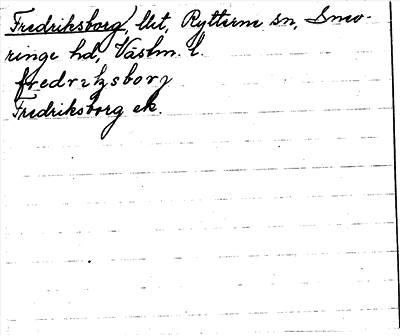 Fredriksborg, lht, Rytterne sn, Snev-
ringe hd, Västm. l.
fredrıksborj
Fredriksborg ek.